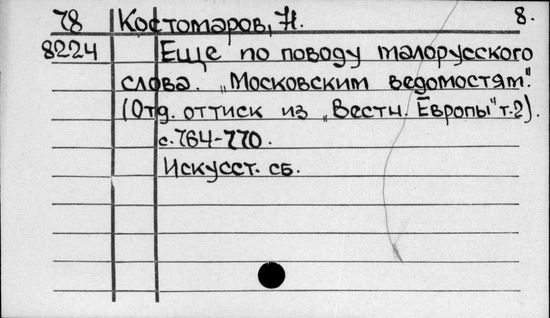 78 Костомаров, Н. 8.
8224 Еще по поводу малорусского
слова. „Московским ведомостям".
(Отд. оттиск из „Вестн. Европы" т.2).
с.764-770.
Искусст. сб.